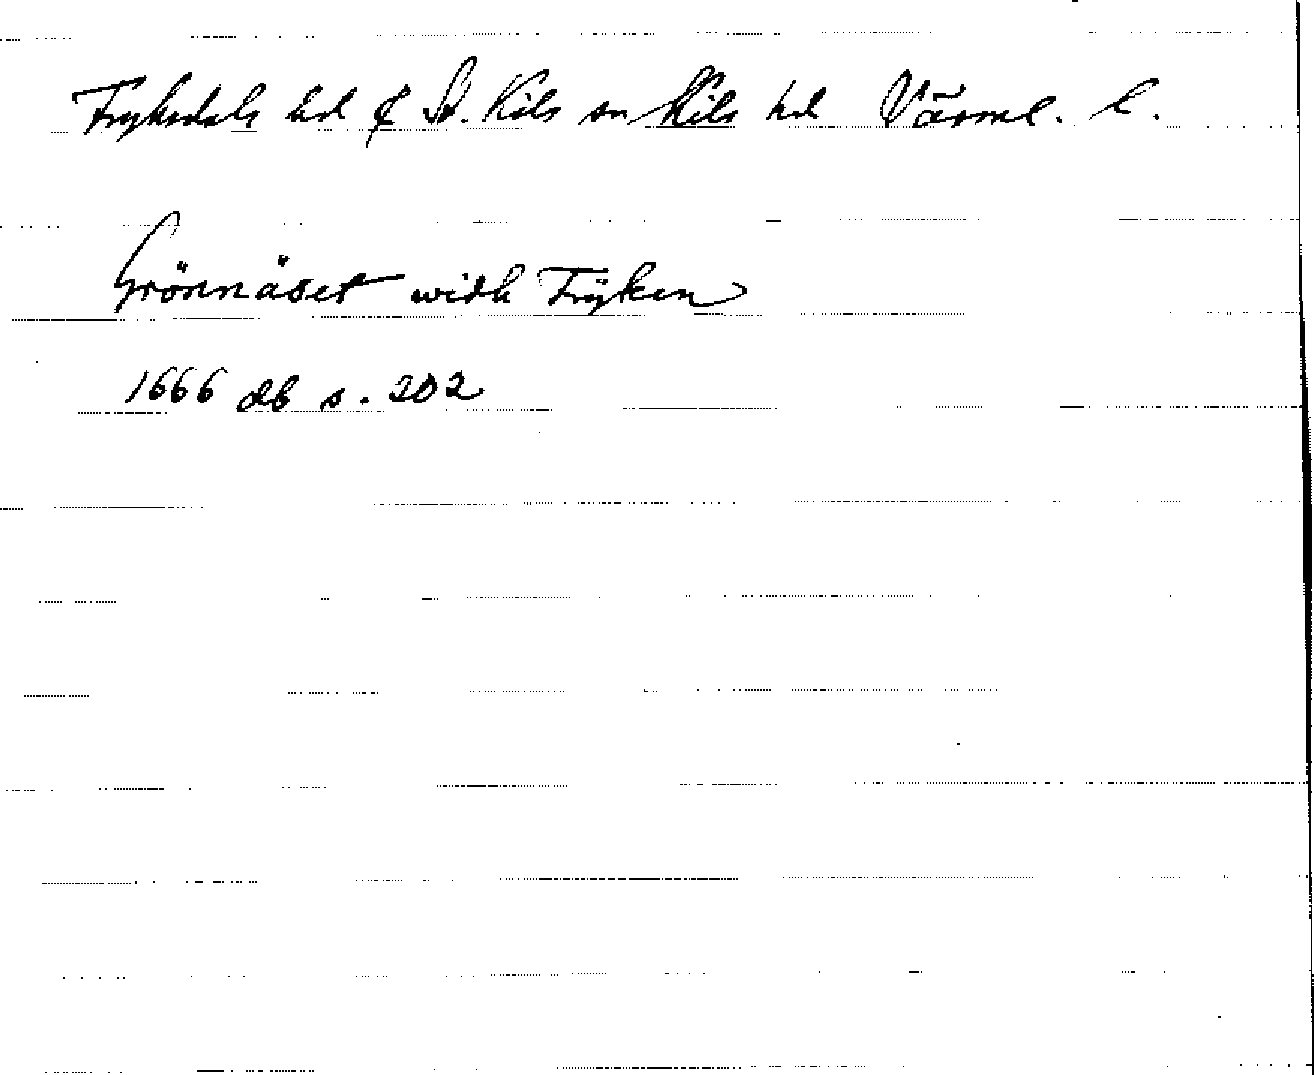 Fryksdals hd & St. Kils sn Kils hd Värml. l.
Grönnäset widh Frÿken
1666 db s. 202